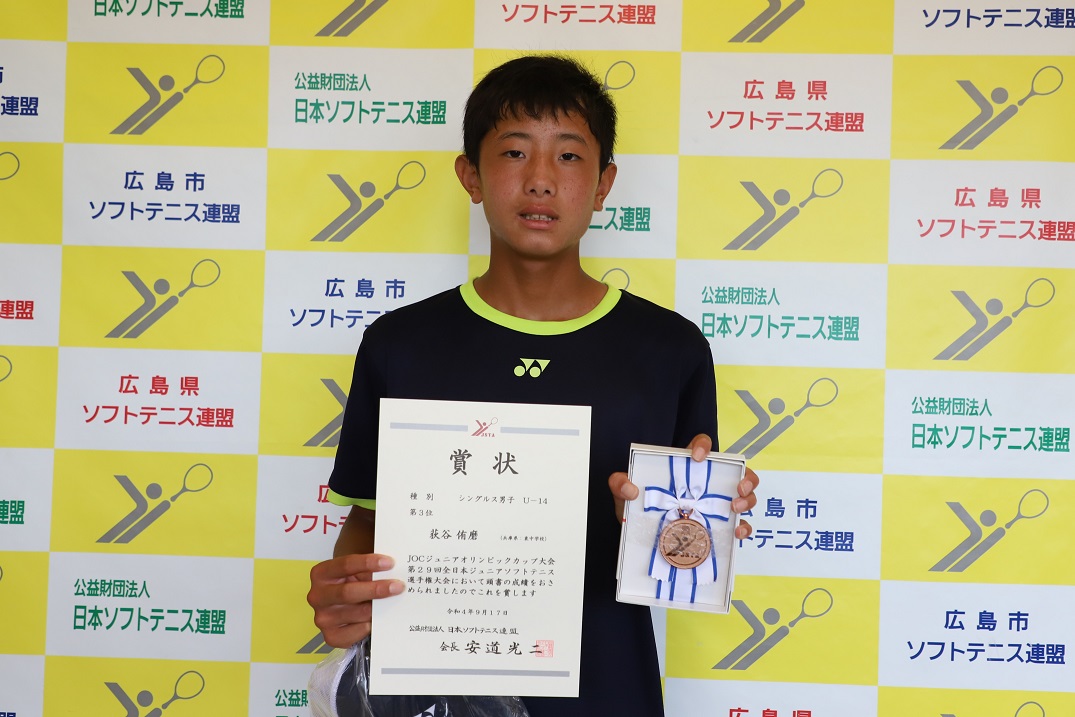 日本ソフトテニス連盟
ソフトテニス連盟
ソフトテニス連盟
公益財団法人
日本ソフトテニス連盟
広島県
ソフトテニス連盟
広島市
ソフトテニス連盟
広島県
ソフトテニス連盟
ニス連盟
連盟
広島市
ソフトテニス連
公益財団法人
日本ソフトテニス連盟
広島県
ソフトテニス連盟
公益財団法人
日本ソフトテニス連盟
島市
ソフトテニス連盟
公益財団法人
日本ソフトテニス連盟
広島市
ソフトテニス連盟
公益財団
広島県
賞状
種別 シングルス男子 U-14
第3位
荻谷 侑磨 (兵庫県:東中学校)
JOCジュニアオリンピックカップ大会
第29回全日本ジュニアソフトテニス
選手権大会において頭書の成績をおさ
められましたのでこれを賞します
令和4年9月17日
公益財団法人 日本ソフトテニス連盟
会長 安道光二